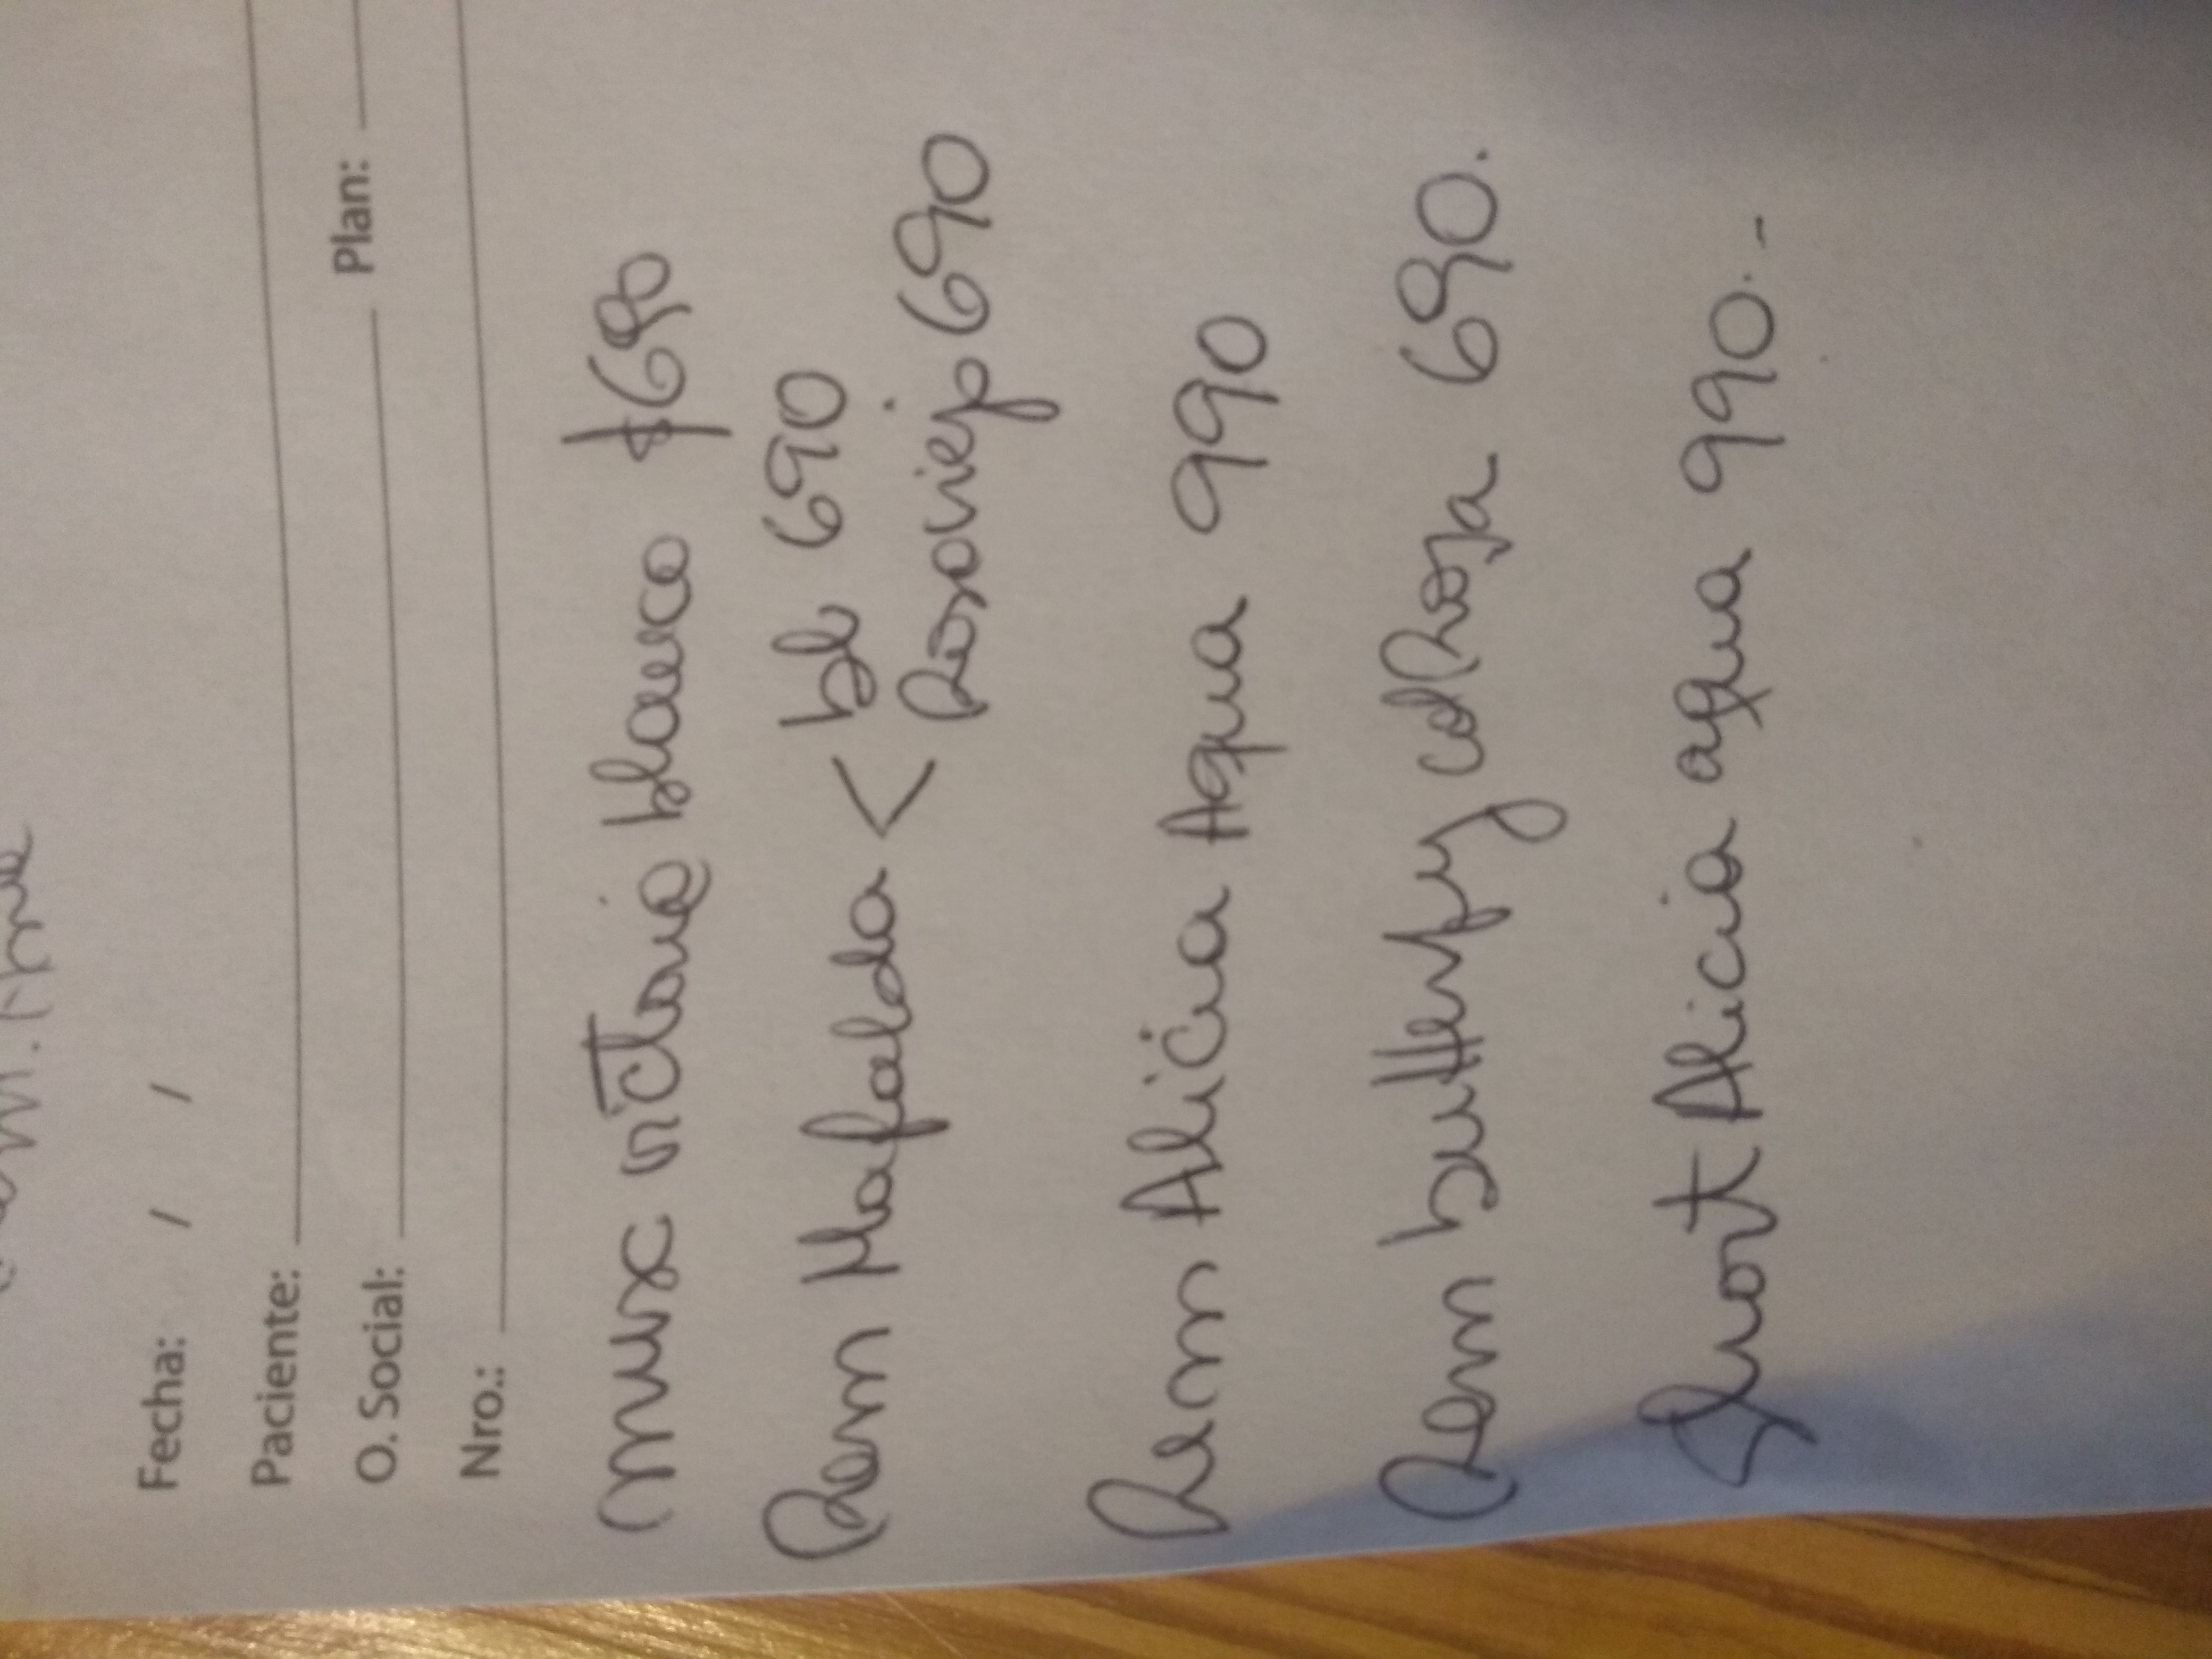 Fecha: / /
Paciente:
O. Social: Plan:
Nro.:
musc victoria blanco $690
Rem Mafalda < bl 690
Rosaviejo 690
Rem Alicia Aqua 990
Rem butterfy col Rosa 690.
Short Alicia aqua 990.-